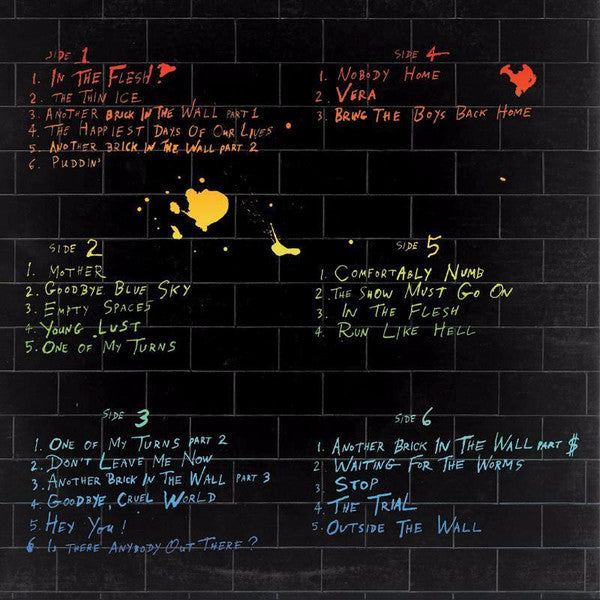 SIDE 1
1. IN THE FLESH?
2. THE THIN ICE
3. ANOTHER BRICK IN THE WALL PART 1
4. THE HAPPIEST DAYS OF OUR LIVES
5. ANOTHER BRICK IN THE WALL PART 2
6. PUDDIN'
SIDE 2
1. MOTHER
2. GOODBYE BLUE SKY
3. EMPTY SPACES
4. YOUNG LUST
5. ONE OF MY TURNS
SIDE 3
1. ONE OF MY TURNS PART 2
2. DON'T LEAVE ME NOW
3. ANOTHER BRICK IN THE WALL PART 3
4. GOODBYE, CRUEL WORLD
5. HEY YOU!
6 IS THERE ANYBODY OUT THERE?
SIDE 4
1. NOBODY HOME
2. VERA
3. BRING THE BOYS BACK HOME
SIDE 5
1. COMFORTABLY NUMB
2. THE SHOW MUST GO ON
3. IN THE FLESH
4. RUN LIKE HELL
SIDE 6
1. ANOTHER BRICK IN THE WALL PART $
2. WAITING FOR THE WORMS
3 STOP
4. THE TRIAL
5. OUTSIDE THE WALL